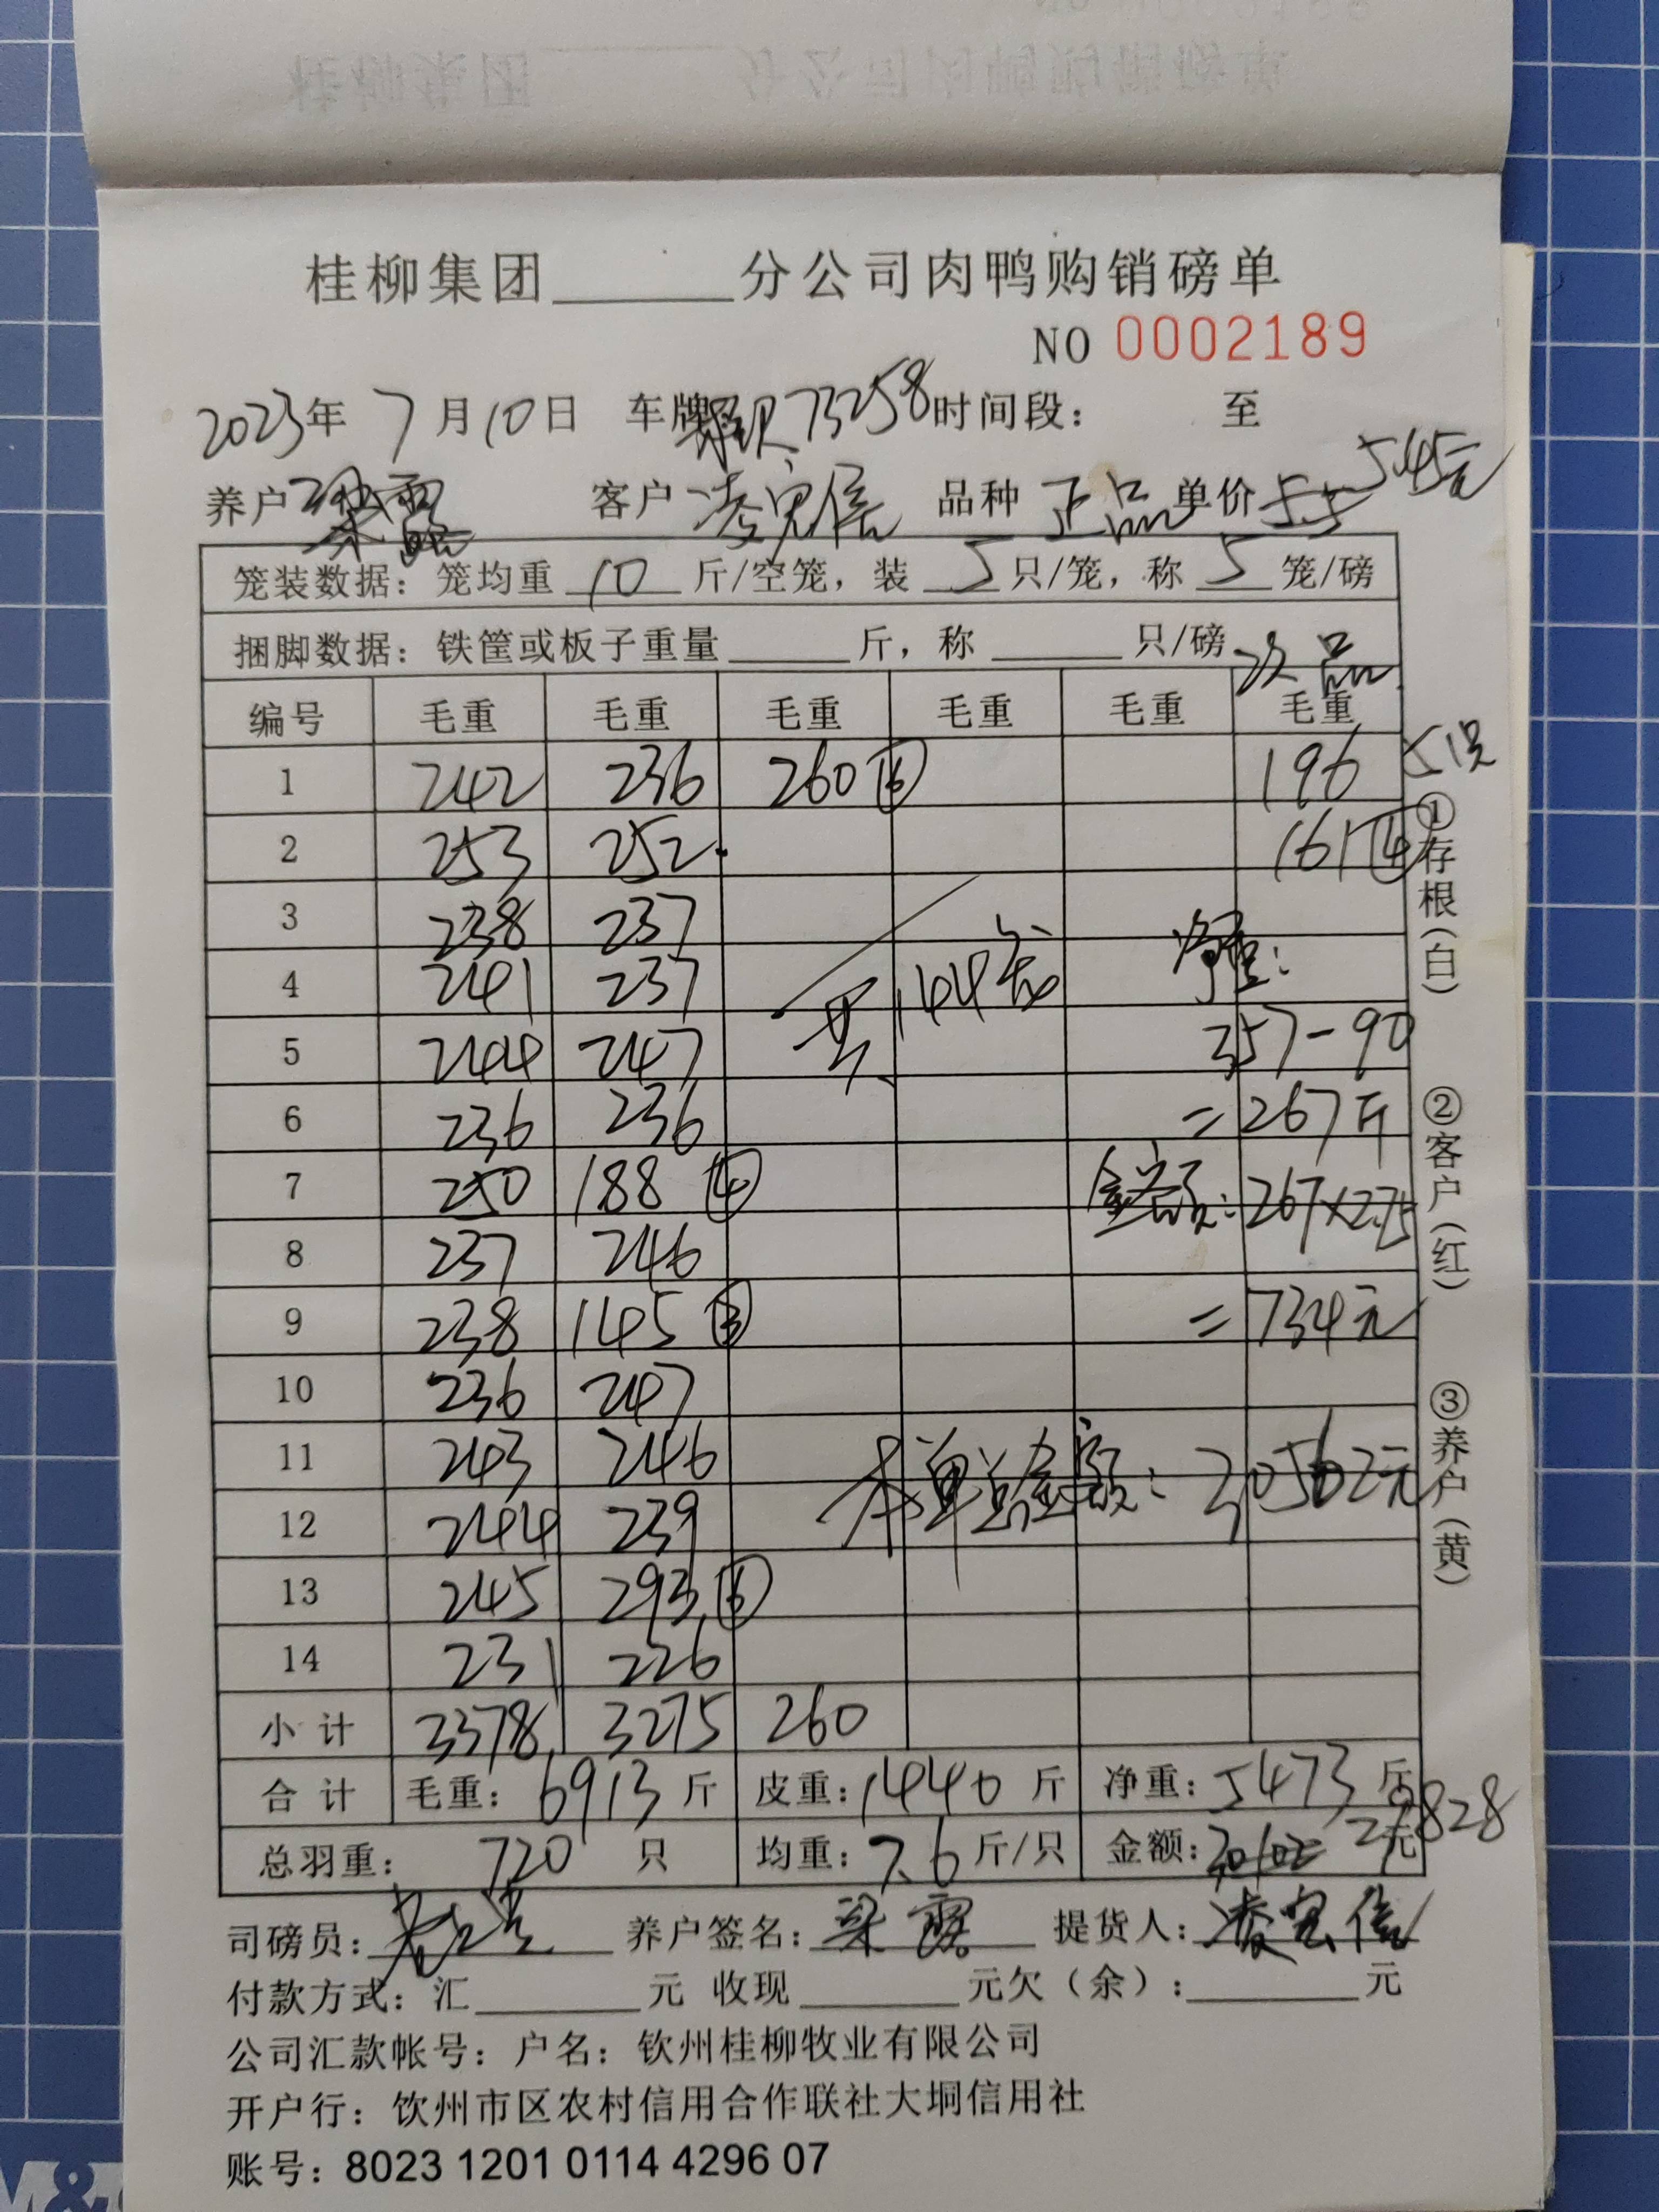 桂柳集团______分公司肉鸭购销磅单
NO 0002189
2023年 7月10日 车牌 73258 时间段: 至
养户 梁露 客户 凌宪信 品种 正品 单价 5.5 5.45元
笼装数据:笼均重 10 斤/空笼,装 5 只/笼,称 5 笼/磅
捆脚数据:铁筐或板子重量______斤,称______只/磅
次品
编号 毛重 毛重 毛重 毛重 毛重 毛重
1 242 236 260⑥ 196 51只
2 253 252 161④
3 238 237 净重:
4 241 237 共144笼
5 244 247 357-90
6 236 236 =267斤
7 250 188④ 金额:267×2.75
8 237 246
9 238 145③ =734元
10 236 247
11 243 246 本单总金额:30562元
12 244 239
13 245 293⑥
14 231 226
小计 3378 3275 260
合计 毛重:6913斤 皮重:1440斤 净重:5473斤
总羽重: 720 只 均重:7.6斤/只 金额:30102 29828元
司磅员: 养户签名:梁露 提货人:凌宪信
付款方式:汇______元 收现______元欠(余):______元
公司汇款帐号:户名:钦州桂柳牧业有限公司
开户行:钦州市区农村信用合作联社大垌信用社
账号:8023 1201 0114 4296 07
①存根(白)
②客户(红)
③养户(黄)